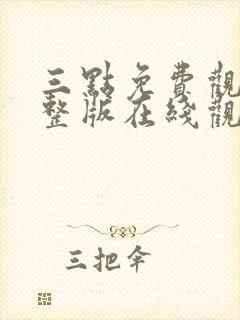 三點免費觀
整版在綫觀
三把伞